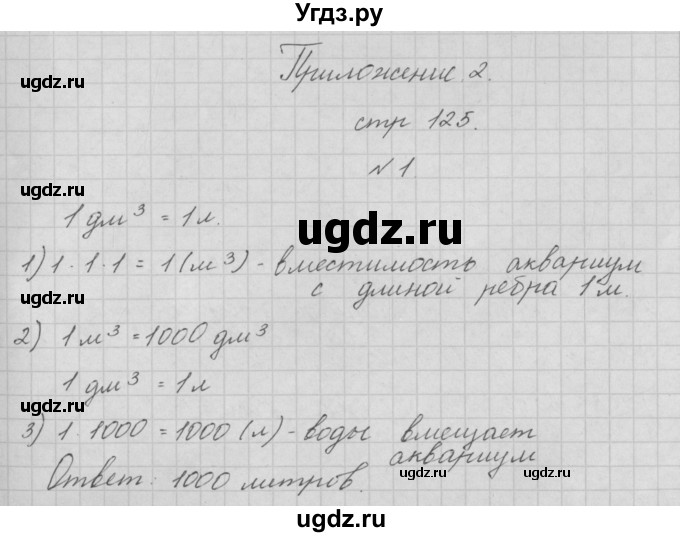 Угдз.ру
ugdz.ru
ugdz.ru
Приложение 2.
ugdz.ru
стр 125.
№1
ugdz.ru
ugdz.ru
1 дм³ = 1л.
ugdz.ru
1) 1 · 1 · 1 = 1 (м³) - вместимость аквариум
с длиной ребра 1м.
ugdz.ru
2) 1 м³ = 1000 дм³
1 дм³ = 1л
ugdz.ru
3) 1 · 1000 = 1000 (л) - воды вмещает
аквариум
Ответ: 1000 литров.
ugdz.ru
ugdz.ru
ugdz.ru